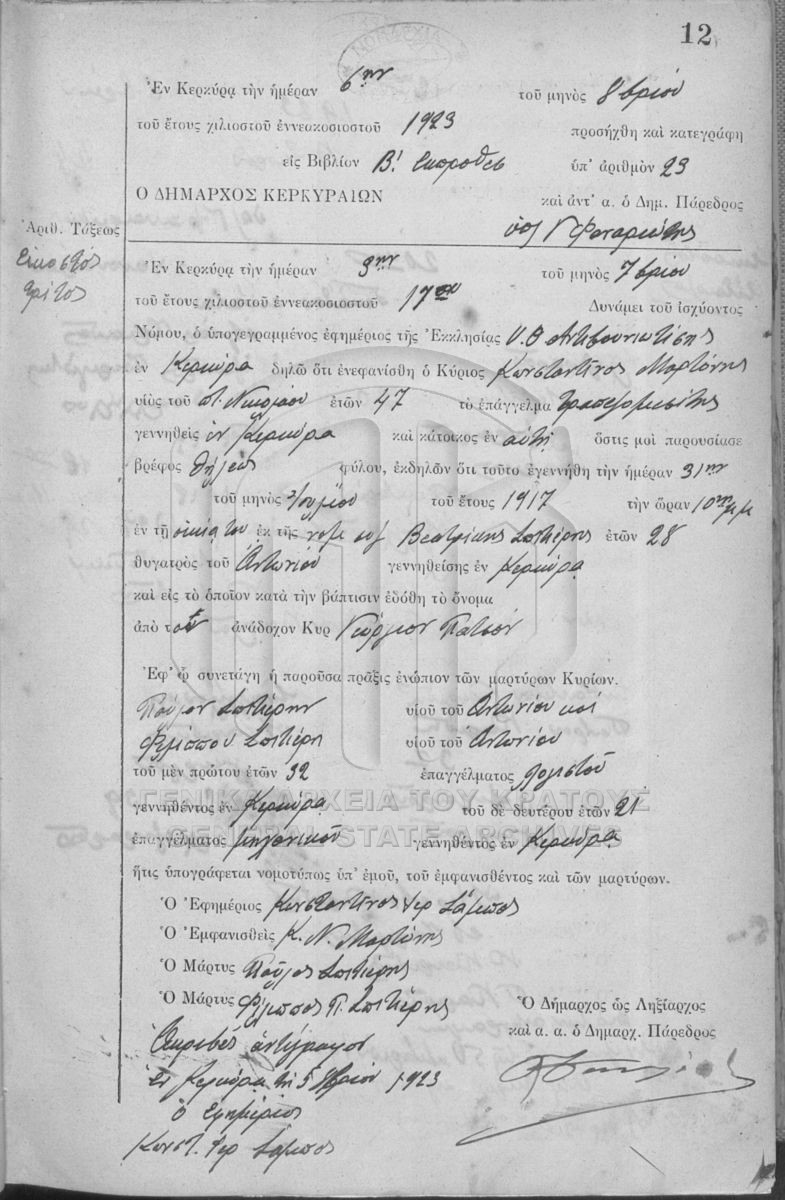 12
Ἐν Κερκύρᾳ τὴν ἡμέραν 6ην τοῦ μηνὸς 8βρίου
τοῦ ἔτους χιλιοστοῦ ἐννεακοσιοστοῦ 1923 προσήχθη καὶ κατεγράφη
εἰς Βιβλίον Β! Εκπροθεσ ὑπ' ἀριθμὸν 23
Ο ΔΗΜΑΡΧΟΣ ΚΕΡΚΥΡΑΙΩΝ καὶ ἀντ' α. ὁ Δημ. Πάρεδρος
Ἀριθ. Τάξεως
Εικοστός
τρίτος
Ἐν Κερκύρᾳ τὴν ἡμέραν 3ην τοῦ μηνὸς 7βρίου
τοῦ ἔτους χιλιοστοῦ ἐννεακοσιοστοῦ 17ου Δυνάμει τοῦ ἰσχύοντος
Νόμου, ὁ ὑπογεγραμμένος ἐφημέριος τῆς Ἐκκλησίας Υ.Θ Αντιβουνιωτίσης
ἐν Κερκύρᾳ δηλῶ ὅτι ἐνεφανίσθη ὁ Κύριος Κωνσταντῖνος Μαρτίνης
υἱὸς τοῦ π. Νικολάου ἐτῶν 47 τὸ ἐπάγγελμα τραπεζομεσίτης
γεννηθεὶς ἐν Κερκύρᾳ καὶ κάτοικος ἐν αὐτῇ ὅστις μοὶ παρουσίασε
βρέφος θήλεος φύλου, ἐκδηλῶν ὅτι τοῦτο ἐγεννήθη τὴν ἡμέραν 31ην
τοῦ μηνὸς Ἰουλίου τοῦ ἔτους 1917 τὴν ὥραν 10ην μμ
ἐν τῇ οἰκίᾳ του ἐκ τῆς νομ συζ Βεατρίκης Σπιτιέρης ἐτῶν 28
θυγατρὸς τοῦ Ἀντωνίου γεννηθείσης ἐν Κερκύρᾳ
καὶ εἰς τὸ ὁποῖον κατὰ τὴν βάπτισιν ἐδόθη τὸ ὄνομα
ἀπὸ τον ἀνάδοχον Κυρ Γεώργιον
Ἐφ' ᾧ συνετάγη ἡ παροῦσα πρᾶξις ἐνώπιον τῶν μαρτύρων Κυρίων.
Παύλου Σπιτιέρη υἱοῦ τοῦ Ἀντωνίου καὶ
Φιλίππου Σπιτιέρη υἱοῦ τοῦ Ἀντωνίου
τοῦ μὲν πρώτου ἐτῶν 32 ἐπαγγέλματος λογιστοῦ
γεννηθέντος ἐν Κερκύρᾳ τοῦ δὲ δευτέρου ἐτῶν 21
ἐπαγγέλματος μηχανικοῦ γεννηθέντος ἐν Κερκύρᾳ
ἥτις ὑπογράφεται νομοτύπως ὑπ' ἐμοῦ, τοῦ ἐμφανισθέντος καὶ τῶν μαρτύρων.
Ὁ Ἐφημέριος Κωνσταντῖνος ιερ Σάμπος
Ὁ Ἐμφανισθεὶς Κ. Ν. Μαρτίνης
Ὁ Μάρτυς Παῦλος Σπιτιέρης
Ὁ Μάρτυς Φίλιππος Π. Σπιτιέρης
Ὁ Δήμαρχος ὡς Ληξίαρχος
καὶ α. α. ὁ Δημαρχ. Πάρεδρος
Ἀκριβὲς ἀντίγραφον
Ἐν Κερκύρᾳ τῇ 5 8βρίου 1923
ὁ Ἐφημέριος
Κωνστ. ιερ Σάμπος
ΓΕΝΙΚΑ ΑΡΧΕΙΑ ΤΟΥ ΚΡΑΤΟΥΣ
GENERAL STATE ARCHIVES